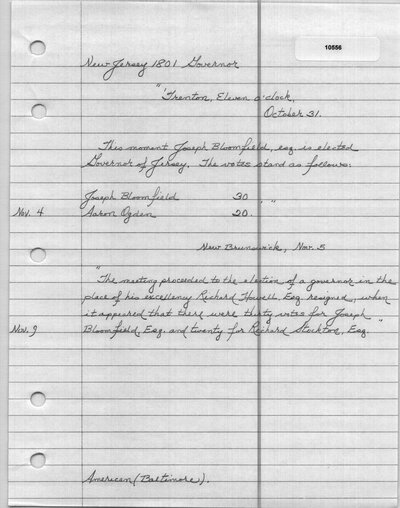 10556
New Jersey 1801 Governor
"Trenton, Eleven o'clock,
October 31.
This moment Joseph Bloomfield, esq. is elected
Governor of Jersey. The votes stand as follows:
Joseph Bloomfield 30
Nov. 4 Aaron Ogden 20. "
New Brunswick, Nov. 5
"The meeting proceeded to the election of a governor in the
place of his excellency Richard Howell, Esq. resigned, when
it appeared that there were thirty votes for Joseph
Nov. 9 Bloomfield, Esq. and twenty for Richard Stockton, Esq. "
American (Baltimore).